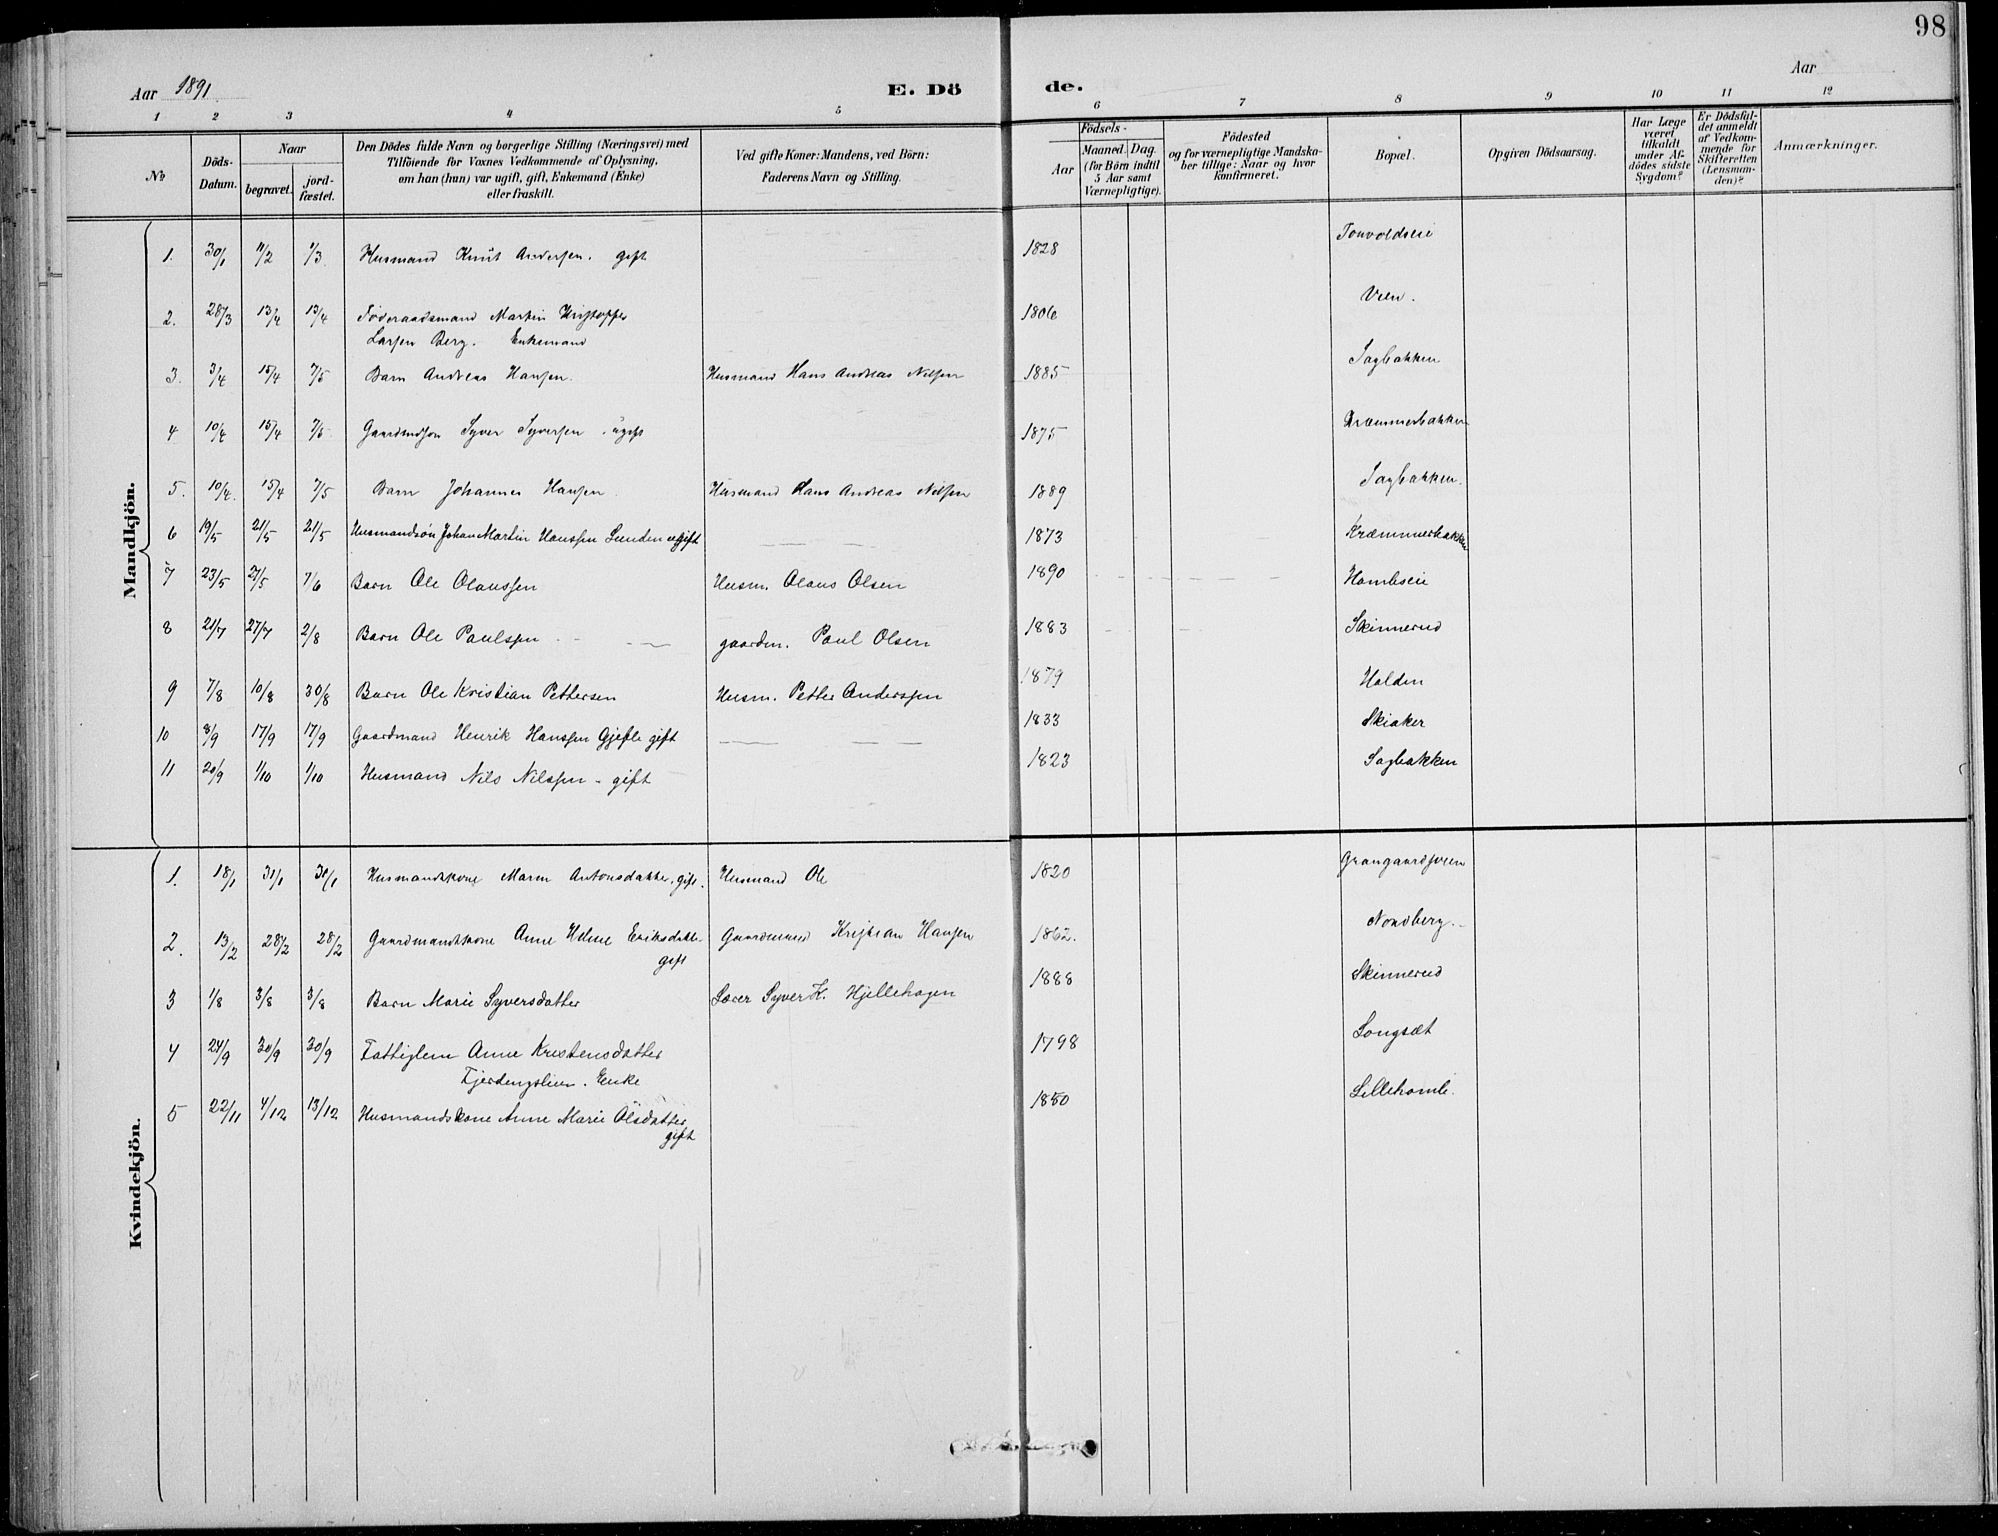 98
Aar 1891.
E. Dö de.
Aar
1 2 3 4 5 6 7 8 9 10 11 12
No
Döds-Datum.
Naar
begravet.
jord-fæstet.
Den Dödes fulde Navn og borgerlige Stilling (Næringsvei) med
Tilföiende for Voxnes Vedkommende af Oplysning,
om han (hun) var ugift, gift, Enkemand (Enke)
eller fraskilt.
Ved gifte Koner: Mandens, ved Börn:
Faderens Navn og Stilling.
Födsels-
Aar
Maaned. Dag.
(for Börn indtil
5 Aar samt
Værnepligtige).
Födested
og for værnepligtige Mandska-
ber tillige: Naar og hvor
konfirmeret.
Bopæl.
Opgiven Dödsaarsag.
Har Læge
været
tilkaldt
under Af-
dödes sidste
Sygdom?
Er Dödsfal-
det anmeldt
af Vedkom-
mende for
Skifteretten
(Lensman-
den)?
Anmærkninger.
Mandkjön.
1. 30/1 11/2 1/3 Husmand Knut Andersen. gift 1828
2. 28/3 13/4 13/4 Föderaadsmand Martin Kristoffer 1806 Veen.
Larsen Berg. Enkemand
3. 3/4 15/4 7/5 Barn Andreas Hansen. Husmand Hans Andreas Nilsen 1885 Sagbakken
4 10/4 15/4 7/5 Syver Syversen. ugift 1875 Kræmmerbakken
5. 10/4. 15/4 7/5 Barn Johannes Hansen. Husmand Hans Andreas Nilsen 1889 Sagbakken.
6 19/5 21/5 21/5 Husmandsön Johan Martin Hanssen Lunden ugift 1873 Kræmmerbakken
7 23/5 27/5 7/6 Barn Ole Olaussen Husm. Olaus Olsen 1890
8 21/7 27/7 2/8 Barn Ole Paulssen gaardm. Paul Olsen 1883 Skinnerud
9 7/8 10/8 30/8 Barn Ole Kristian Pettersen Husm. Petter Anderssen 1879 Halden
10 8/9 17/9 17/9 Gaardmand Henrik Hanssen Gjefle gift 1833 Skiaker
11 20/9 1/10 1/10 Husmand Nils Nilssen - gift 1823 Sagbakken
Kvindekjön.
1. 18/1 31/1 31/1 Husmandskone Maren Antonsdatter, gift. Husmand Ole 1820
2. 13/2 28/2 28/2 Gaardmandskone Anne Helene Eriksdatter Gaardmand Kristian Hansen 1862. Nordberg.
gift
3 1/8 3/8 3/8 Barn Marie Syversdatter Lærer Syver K. Hjellehagen 1888 Skinnerud
4 24/9 30/9 30/9 Fattiglem Anne Kristensdatter 1798 Longsæt
Fjerdingslien. Enke
5 22/11 4/12 13/12 Husmandskone Anne Marie Olsdatter 1850
gift